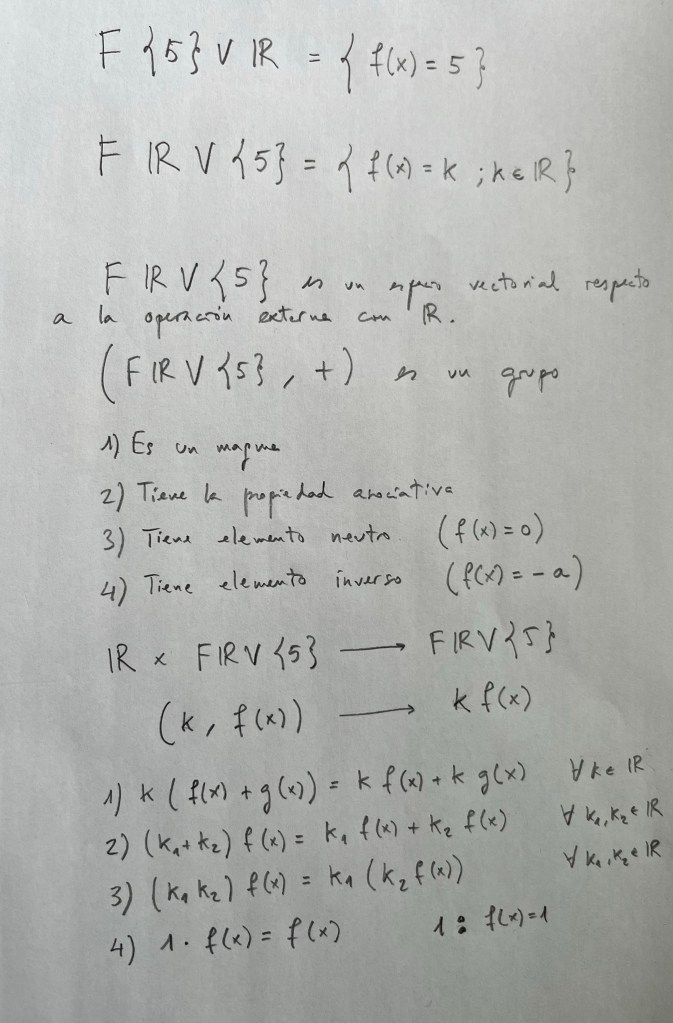 F {5} V ℝ = { f(x) = 5 }
F ℝ V {5} = { f(x) = k ; k ∈ ℝ }
F ℝ V {5} es un espacio vectorial respecto
a la operación externa con ℝ.
(F ℝ V {5} , +) es un grupo
1) Es un magma
2) Tiene la propiedad asociativa
3) Tiene elemento neutro (f(x) = 0)
4) Tiene elemento inverso (f(x) = - a)
ℝ x F ℝ V {5} ⟶ F ℝ V {5}
(k, f(x)) ⟶ k f(x)
1) k (f(x) + g(x)) = k f(x) + k g(x) ∀ k ∈ ℝ
2) (k₁ + k₂) f(x) = k₁ f(x) + k₂ f(x) ∀ k₁, k₂ ∈ ℝ
3) (k₁ k₂) f(x) = k₁ (k₂ f(x)) ∀ k₁, k₂ ∈ ℝ
4) 1 · f(x) = f(x) 1 : f(x) = 1